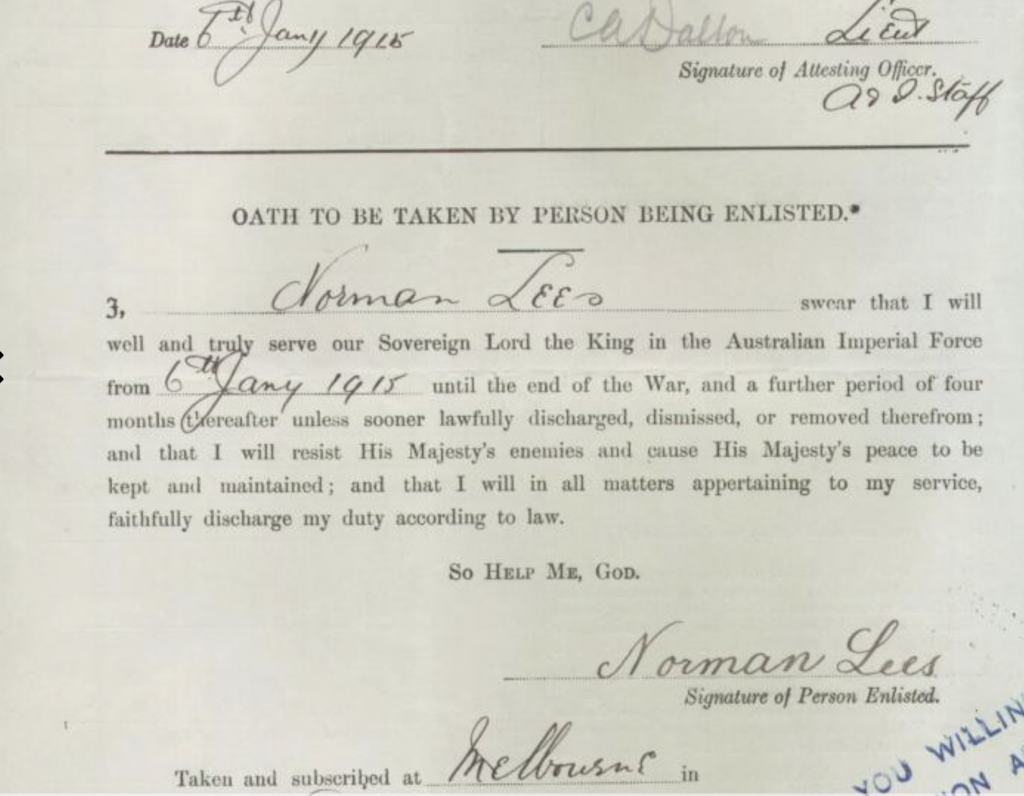 Date 6th Jany 1915 CA Dalton Lieut
Signature of Attesting Officer.
A & I. Staff
OATH TO BE TAKEN BY PERSON BEING ENLISTED.*
3, Norman Lees swear that I will
well and truly serve our Sovereign Lord the King in the Australian Imperial Force
from 6th Jany 1915 until the end of the War, and a further period of four
months thereafter unless sooner lawfully discharged, dismissed, or removed therefrom;
and that I will resist His Majesty's enemies and cause His Majesty's peace to be
kept and maintained; and that I will in all matters appertaining to my service,
faithfully discharge my duty according to law.
SO HELP ME, GOD.
Norman Lees
Signature of Person Enlisted.
Taken and subscribed at Melbourne in
YOU WILLIN
ON A